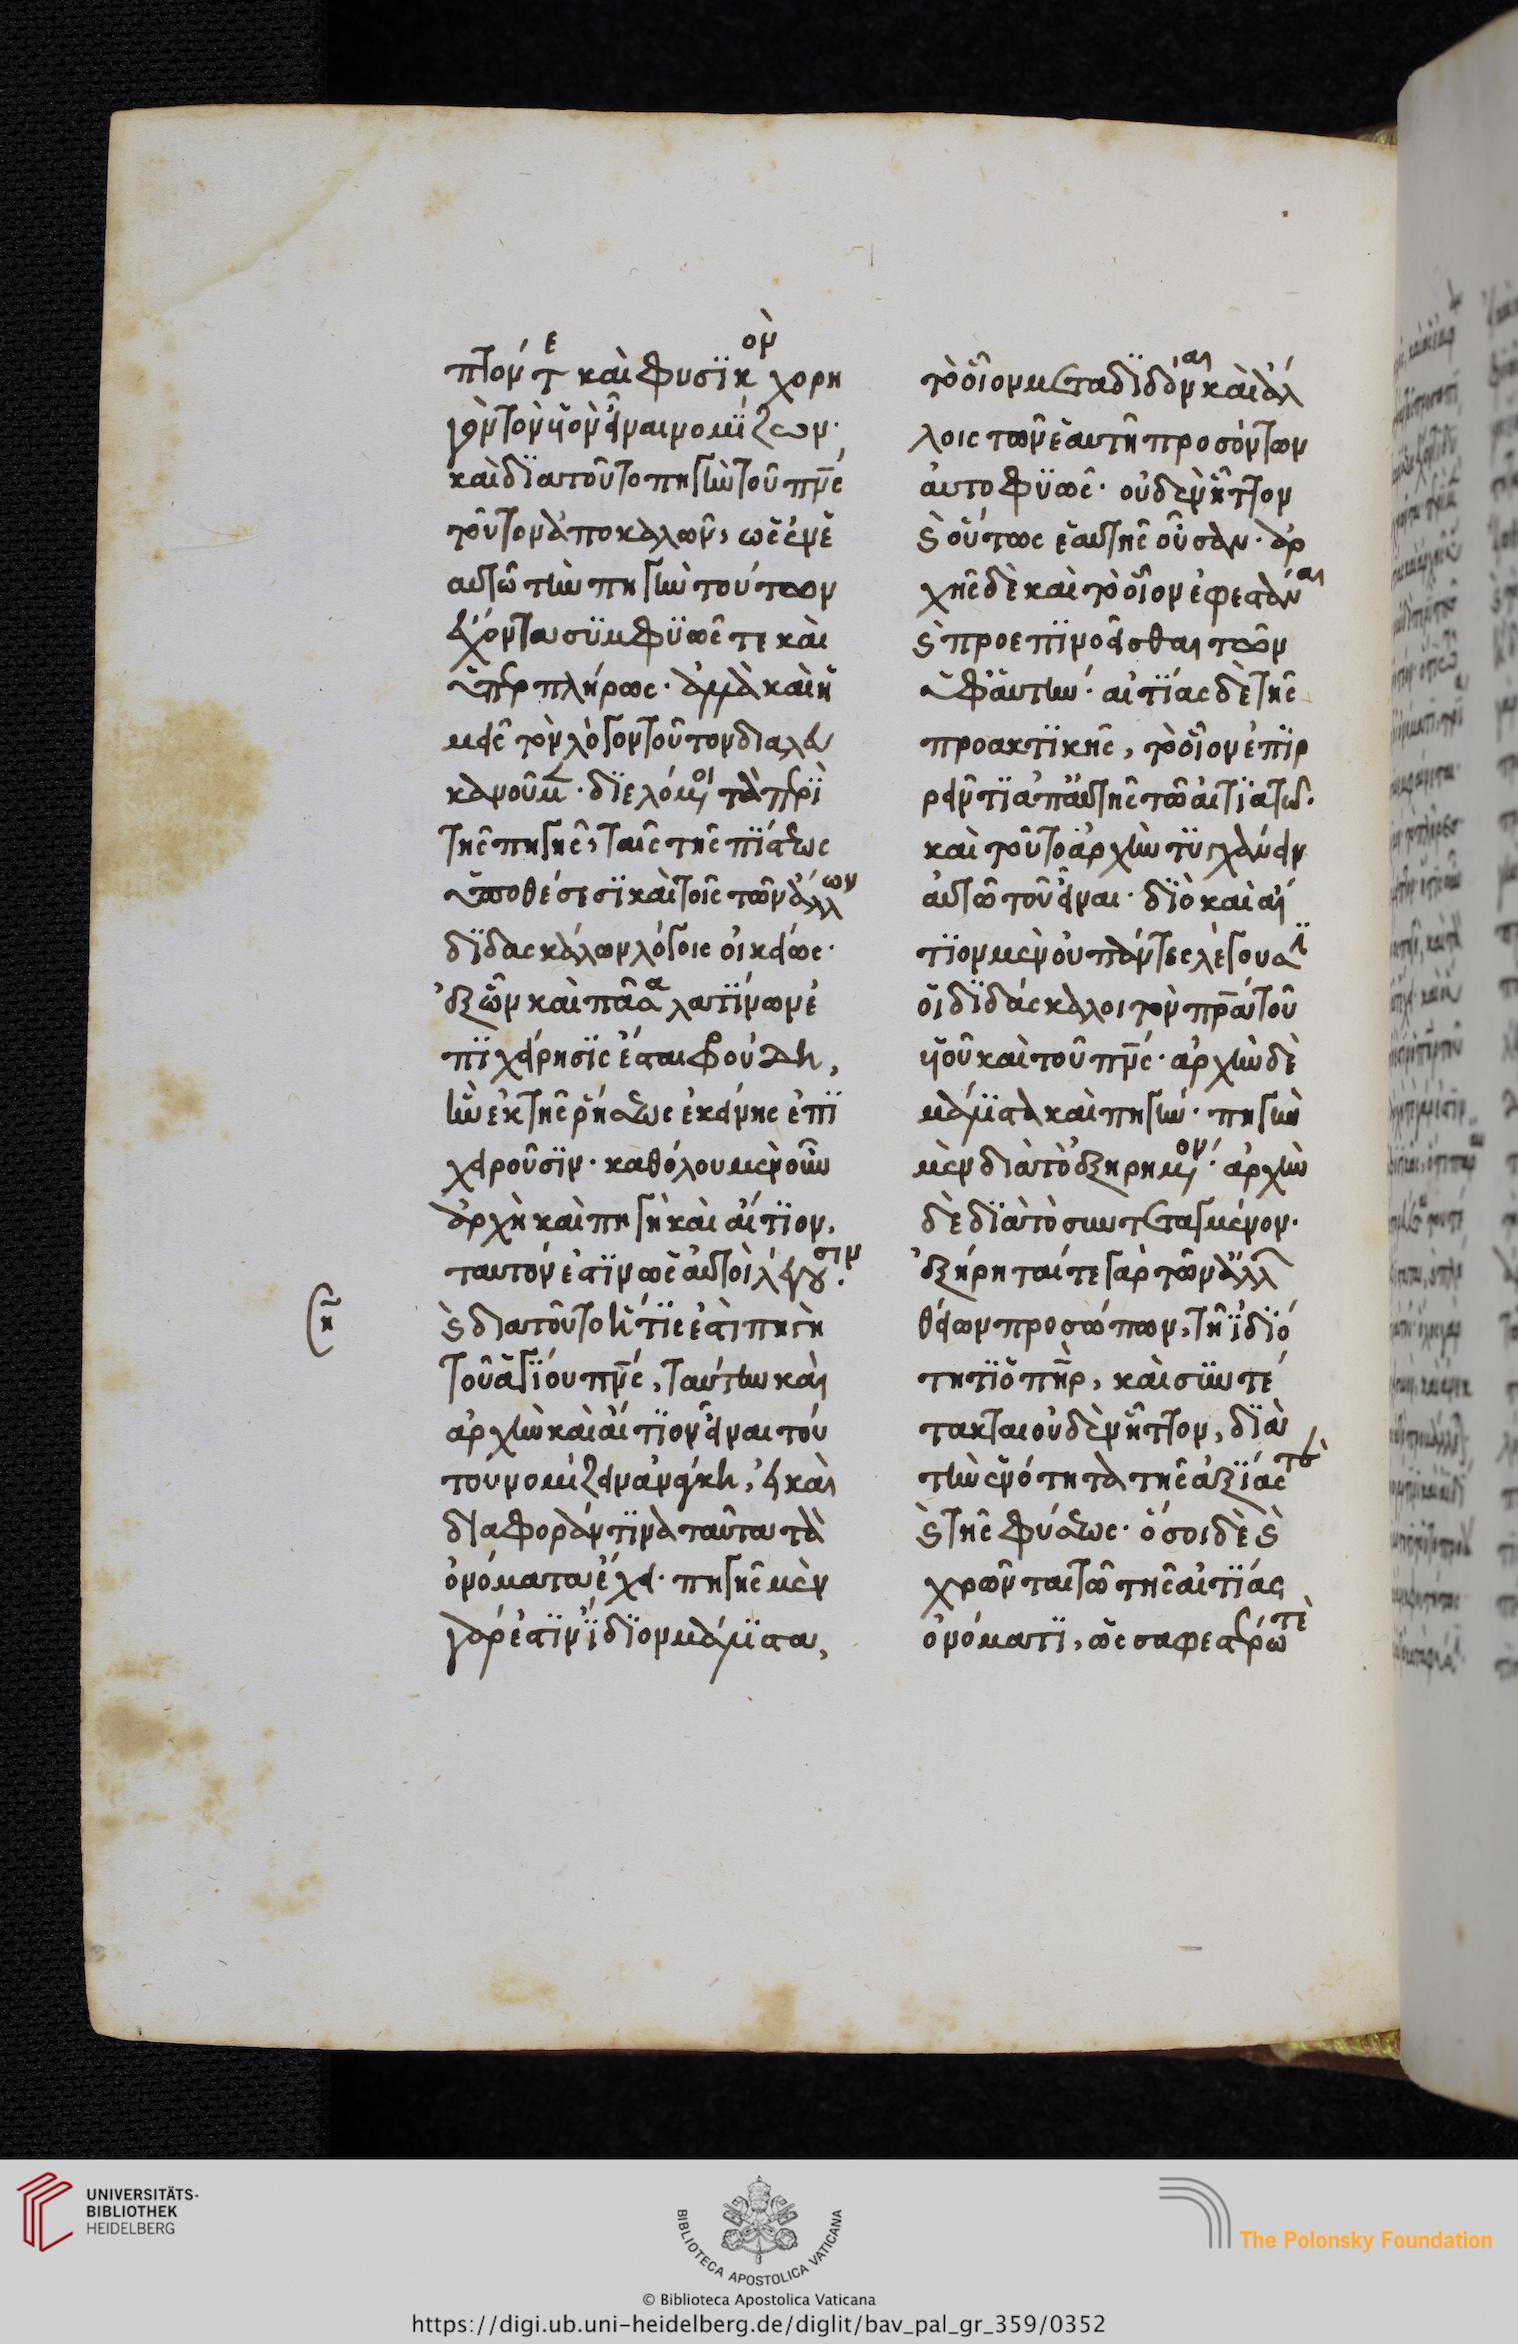 πτόν τε καὶ φυσικὸν χορη
γὸν τὸν υἱὸν εἶναι νομίζων·
καὶ διατοῦτο πηγὴν τοῦ πν̅ς
τοῦτον ἀποκαλῶν, ὡς ἐν ἑ
αυτῶ τὴν πηγὴν τούτων
ἔχοντα συμφυῶς τε καὶ
ὑπερπλήρως· ἀλλὰ καὶ ἡ
μεῖς τὸν λόγον τοῦτον
διελόμενοι τὰ περὶ
τῆς πηγῆς, ταῖς τῆς πίστεως
ὑποθέσεσι καὶ τοῖς τῶν ἄλλων
διδασκάλων λόγοις οἰκείως·
ἐξ ὧν καὶ πᾶσα λατίνων ἐ
πιχείρησις ἔσται φρούδη,
ἣν ἐκ τῆς ῥήσεως ἐκείνης ἐπι
χειροῦσιν· καθόλου μὲν οὖν
ἀρχὴ καὶ πηγὴ καὶ αἴτιον,
ταυτόν ἐστιν ὡς αὐτοὶ λέγουσιν.
καὶ διατοῦτο ἥτις ἐστὶ πηγὴ
τοῦ ἁγίου πν̅ς, ταύτην καὶ
ἀρχὴν καὶ αἴτιον εἶναι τού
του νομίζειν ἀνάγκη, εἰ καὶ
διαφοράν τινα ταῦτα τὰ
ὀνόματα ἔχει· πηγῆς μὲν
γάρ ἐστιν ἴδιον μάλιστα,
τὸ οἷον μεταδιδόναι καὶ ἄλ
λοις τῶν ἑαυτῆ προσόντων
αὐτοφυῶς· οὐδὲν ἧττον
καὶ οὕτως ἑαυτῆς οὖσαν· ἀρ
χῆς δὲ καὶ τὸ οἷον ἐφεστάναι
καὶ προεπινοεῖσθαι τῶν
ὑφ' ἑαυτήν· αἰτίας δὲ τῆς
προακτικῆς, τὸ οἷον ἐπιρ
ρεῖν τι ἀπ' αὐτῆς τῶ αἰτιατῶ·
καὶ τοῦτο ἀρχὴν τυγχάνειν
αὐτῶ τοῦ εἶναι· διὸ καὶ αἴ
τιον μὲν οὐ πάντες λέγουσϊ
οἱ διδάσκαλοι τὸν πρ̅α τοῦ
υἱοῦ καὶ τοῦ πν̅ς· ἀρχὴν δὲ
μάλιστα καὶ πηγήν· πηγὴν
μὲν διὰ τὸ ἐξηρημένον· ἀρχὴν
δὲ διὰ τὸ συντεταγμένον·
ἐξήρηταί τε γὰρ τῶν ἄλλων
θείων προσώπων, τῆ ἰδιό
τητι ὁ πη̅ρ, καὶ συντέ
τακται οὐδὲν ἧττον, διὰ
τὴν ἑνότητα τῆς ἀξίας τὲ
καὶ τῆς φύσεως· ὅσοι δὲ καὶ
χρῶνται τῶ τῆς αἰτίας
ὀνόματι, ὡς σαφεστέρω τὲ
UNIVERSITÄTS-
BIBLIOTHEK
HEIDELBERG
BIBLIOTECA APOSTOLICA VATICANA
The Polonsky Foundation
© Biblioteca Apostolica Vaticana
https://digi.ub.uni-heidelberg.de/diglit/bav_pal_gr_359/0352